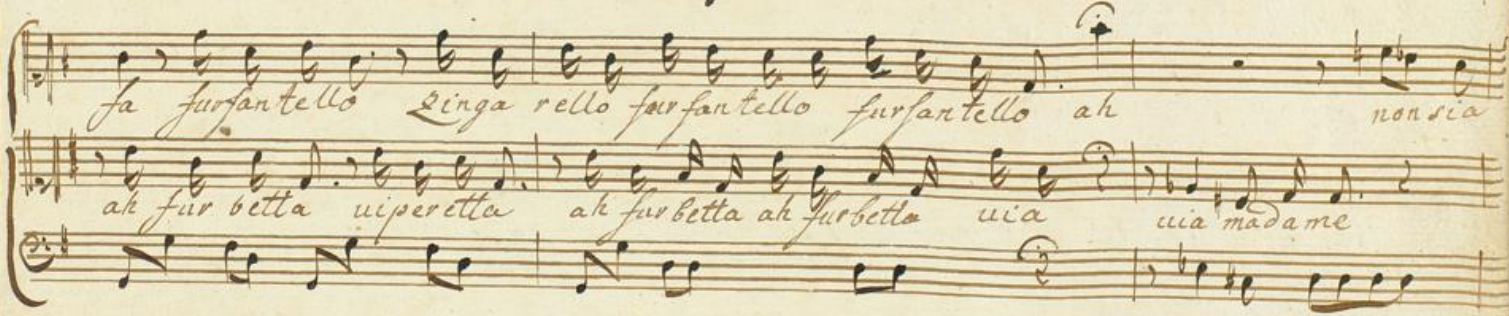 fa furfantello Zinga rello furfantello furfantello ah non sia
ah fur betta viperetta ah furbetta ah furbetta via via madame